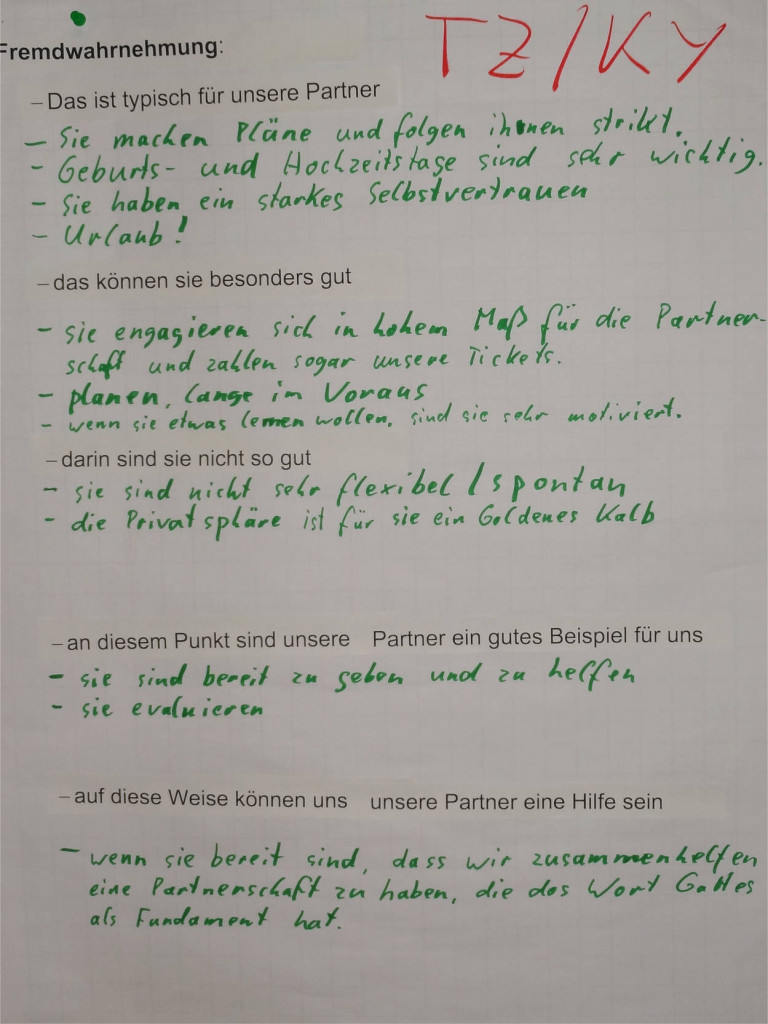 TZ/KY
Fremdwahrnehmung:
– Das ist typisch für unsere Partner
– Sie machen Pläne und folgen ihnen strikt.
- Geburts- und Hochzeitstage sind sehr wichtig.
- Sie haben ein starkes Selbstvertrauen
- Urlaub!
– das können sie besonders gut
- sie engagieren sich in hohem Maß für die Partner-
schaft und zahlen sogar unsere Tickets.
- planen, lange im Voraus
- wenn sie etwas lernen wollen, sind sie sehr motiviert.
– darin sind sie nicht so gut
- sie sind nicht sehr flexibel / spontan
- die Privatsphäre ist für sie ein Goldenes Kalb
– an diesem Punkt sind unsere Partner ein gutes Beispiel für uns
- sie sind bereit zu geben und zu helfen
- sie evaluieren
– auf diese Weise können uns unsere Partner eine Hilfe sein
- wenn sie bereit sind, dass wir zusammenhelfen
eine Partnerschaft zu haben, die das Wort Gottes
als Fundament hat.